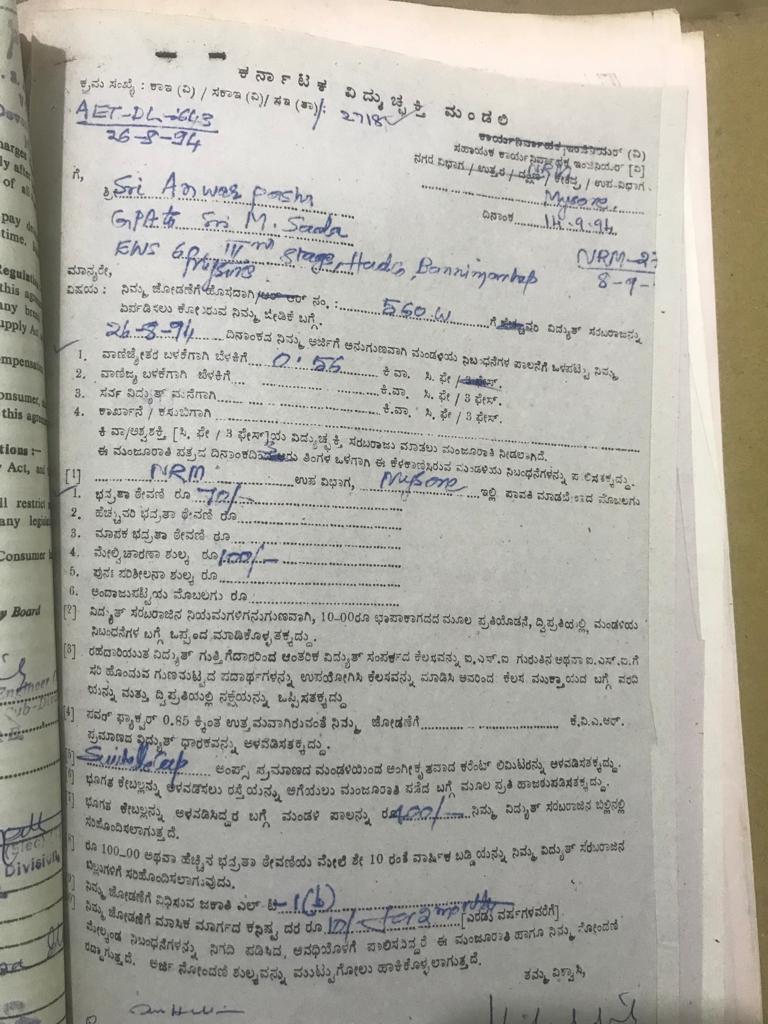 ಕರ್ನಾಟಕ ವಿದ್ಯುಚ್ಛಕ್ತಿ ಮಂಡಲಿ
ಕ್ರಮ ಸಂಖ್ಯೆ : ಕಾಇ (ವಿ) / ಸಕಾಇ (ವಿ)/ ಸಇ (ತಾ)/: 2718
AET-DL-2643
26-8-94
ಕಾರ್ಯನಿರ್ವಾಹಕ ಇಂಜಿನಿಯರ್ (ವಿ)
ಸಹಾಯಕ ಕಾರ್ಯನಿರ್ವಾಹಕ ಇಂಜಿನಿಯರ್ [ವಿ]
ನಗರ ವಿಭಾಗ / ಉತ್ತರ / ದಕ್ಷಿಣ / ಕೇಂದ್ರ / ಉಪ-ವಿಭಾಗ
NRM
Mysore
ದಿನಾಂಕ 14.9.94
ಗೆ,
ಶ್ರೀ Sri Anwar Pasha
GPA to Sri M. Sada
EWS 6 IIIrd Stage, Hudco, Bannimantap
Mysore
NRM-2
8-9-
ಮಾನ್ಯರೇ,
ವಿಷಯ : ನಿಮ್ಮ ಜೋಡಣೆಗೆ ಹೊಸದಾಗಿ/ಆರ್ ಆರ್ ನಂ. : 560 W ಗೆ ಹೆಚ್ಚುವರಿ ವಿದ್ಯುತ್ ಸರಬರಾಜನ್ನು
ಏರ್ಪಡಿಸಲು ಕೋರುವ ನಿಮ್ಮ ಬೇಡಿಕೆ ಬಗ್ಗೆ.
26-8-94 ದಿನಾಂಕದ ನಿಮ್ಮ ಅರ್ಜಿಗೆ ಅನುಗುಣವಾಗಿ ಮಂಡಳಿಯ ನಿಬಂಧನೆಗಳ ಪಾಲನೆಗೆ ಒಳಪಟ್ಟು ನಿಮ್ಮ
1. ವಾಣಿಜ್ಯೇತರ ಬಳಕೆಗಾಗಿ ಬೆಳಕಿಗೆ 0.56 ಕಿ ವಾ. ಸಿ. ಫೇ / 3 ಫೇಸ್.
2. ವಾಣಿಜ್ಯ ಬಳಕೆಗಾಗಿ ಬೆಳಕಿಗೆ ಕಿ.ವಾ. ಸಿ. ಫೇ / 3 ಫೇಸ್.
3. ಸರ್ವ ವಿದ್ಯುತ್ ಮನೆಗಾಗಿ ಕಿ.ವಾ. ಸಿ. ಫೇ / 3 ಫೇಸ್.
4. ಕಾರ್ಖಾನೆ / ಕಸುಬಿಗಾಗಿ
ಕಿ ವಾ/ಅಶ್ವಶಕ್ತಿ [ಸಿ. ಫೇ / 3 ಫೇಸ್]ಯ ವಿದ್ಯುಚ್ಛಕ್ತಿ ಸರಬರಾಜು ಮಾಡಲು ಮಂಜೂರಾತಿ ನೀಡಲಾಗಿದೆ.
ಈ ಮಂಜೂರಾತಿ ಪತ್ರದ ದಿನಾಂಕದಿಂದ ತಿಂಗಳ ಒಳಗಾಗಿ ಈ ಕೆಳಕಾಣಿಸಿರುವ ಮಂಡಳಿಯ ನಿಬಂಧನೆಗಳನ್ನು ಪಾಲಿಸತಕ್ಕದ್ದು.
[1] NRM ಉಪ ವಿಭಾಗ, Mysore ಇಲ್ಲಿ ಪಾವತಿ ಮಾಡಬೇಕಾದ ಮೊಬಲಗು
1. ಭದ್ರತಾ ಠೇವಣಿ ರೂ 70/-
2. ಹೆಚ್ಚುವರಿ ಭದ್ರತಾ ಠೇವಣಿ ರೂ
3. ಮಾಪಕ ಭದ್ರತಾ ಠೇವಣಿ ರೂ
4. ಮೇಲ್ವಿಚಾರಣಾ ಶುಲ್ಕ ರೂ 100/-
5. ಪುನಃ ಪರಿಶೀಲನಾ ಶುಲ್ಕ ರೂ
6. ಅಂದಾಜುಪಟ್ಟಿಯ ಮೊಬಲಗು ರೂ.
[2] ವಿದ್ಯುತ್ ಸರಬರಾಜಿನ ನಿಯಮಗಳಿಗನುಗುಣವಾಗಿ, 10-00ರೂ ಛಾಪಾಕಾಗದದ ಮೂಲ ಪ್ರತಿಯೊಡನೆ, ದ್ವಿಪ್ರತಿಯಲ್ಲಿ ಮಂಡಳಿಯ
ನಿಬಂಧನೆಗಳ ಬಗ್ಗೆ ಒಪ್ಪಂದ ಮಾಡಿಕೊಳ್ಳತಕ್ಕದ್ದು.
[3] ರಹದಾರಿಯುತ ವಿದ್ಯುತ್ ಗುತ್ತಿಗೆದಾರರಿಂದ ಆಂತರಿಕ ವಿದ್ಯುತ್ ಸಂಪರ್ಕದ ಕೆಲಸವನ್ನು ಐ.ಎಸ್.ಐ ಗುರುತಿನ ಅಥವಾ ಐ.ಎಸ್.ಐ.ಗೆ
ಸರಿ ಹೊಂದುವ ಗುಣಮಟ್ಟದ ಪದಾರ್ಥಗಳನ್ನು ಉಪಯೋಗಿಸಿ ಕೆಲಸವನ್ನು ಮಾಡಿಸಿ ಅವರಿಂದ ಕೆಲಸ ಮುಕ್ತಾಯದ ಬಗ್ಗೆ ವರದಿ
ಯನ್ನು ಮತ್ತು ದ್ವಿಪ್ರತಿಯಲ್ಲಿ ನಕ್ಷೆಯನ್ನು ಒಪ್ಪಿಸತಕ್ಕದ್ದು
[4] ಪವರ್ ಫ್ಯಾಕ್ಟರ್ 0.85 ಕ್ಕಿಂತ ಉತ್ತಮವಾಗಿರುವಂತೆ ನಿಮ್ಮ ಜೋಡಣೆಗೆ ಕೆ.ವಿ.ಎ.ಆರ್.
ಪ್ರಮಾಣದ ವಿದ್ಯುತ್ ಧಾರಕವನ್ನು ಅಳವಡಿಸತಕ್ಕದ್ದು.
[5] Suitable Cap ಅಂಪ್ಸ್ ಪ್ರಮಾಣದ ಮಂಡಳಿಯಿಂದ ಅಂಗೀಕೃತವಾದ ಕರೆಂಟ್ ಲಿಮಿಟರನ್ನು ಅಳವಡಿಸತಕ್ಕದ್ದು.
[6] ಭೂಗತ ಕೇಬಲ್ಲನ್ನು ಅಳವಡಿಸಲು ರಸ್ತೆಯನ್ನು ಅಗೆಯಲು ಮಂಜೂರಾತಿ ಪಡೆದ ಬಗ್ಗೆ ಮೂಲ ಪ್ರತಿ ಹಾಜರುಪಡಿಸತಕ್ಕದ್ದು.
[7] ಭೂಗತ ಕೇಬಲ್ಲನ್ನು ಅಳವಡಿಸಿದ್ದರ ಬಗ್ಗೆ ಮಂಡಳಿ ಪಾಲನ್ನು ರೂ 400/- ನಿಮ್ಮ ವಿದ್ಯುತ್ ಸರಬರಾಜಿನ ಬಿಲ್ಲಿನಲ್ಲಿ
ಸರಿಹೊಂದಿಸಲಾಗುತ್ತದೆ.
ರೂ 100-00 ಅಥವಾ ಹೆಚ್ಚಿನ ಭದ್ರತಾ ಠೇವಣಿಯ ಮೇಲೆ ಶೇ 10 ರಂತೆ ವಾರ್ಷಿಕ ಬಡ್ಡಿಯನ್ನು ನಿಮ್ಮ ವಿದ್ಯುತ್ ಸರಬರಾಜಿನ
ಬಿಲ್ಲುಗಳಿಗೆ ಸರಿಹೊಂದಿಸಲಾಗುವುದು.
ನಿಮ್ಮ ಜೋಡಣೆಗೆ ವಿಧಿಸುವ ಜಕಾತಿ ಎಲ್ ಟಿ-1(b)
ನಿಮ್ಮ ಜೋಡಣೆಗೆ ಮಾಸಿಕ ಮಾರ್ಗದ ಕನಿಷ್ಟ ದರ ರೂ [ಎರಡು ವರ್ಷಗಳವರೆಗೆ]
ಮೇಲ್ಕಂಡ ನಿಬಂಧನೆಗಳನ್ನು ನಿಗದಿ ಪಡಿಸಿದ, ಅವಧಿಯೊಳಗೆ ಪಾಲಿಸದಿದ್ದರೆ ಈ ಮಂಜೂರಾತಿ ಹಾಗೂ ನಿಮ್ಮ ನೋಂದಣಿ
ರದ್ದಾಗುತ್ತದೆ. ಅರ್ಜಿ ನೋಂದಣಿ ಶುಲ್ಕವನ್ನು ಮುಟ್ಟುಗೋಲು ಹಾಕಿಕೊಳ್ಳಲಾಗುತ್ತದೆ.
ತಮ್ಮ ವಿಶ್ವಾಸಿ,